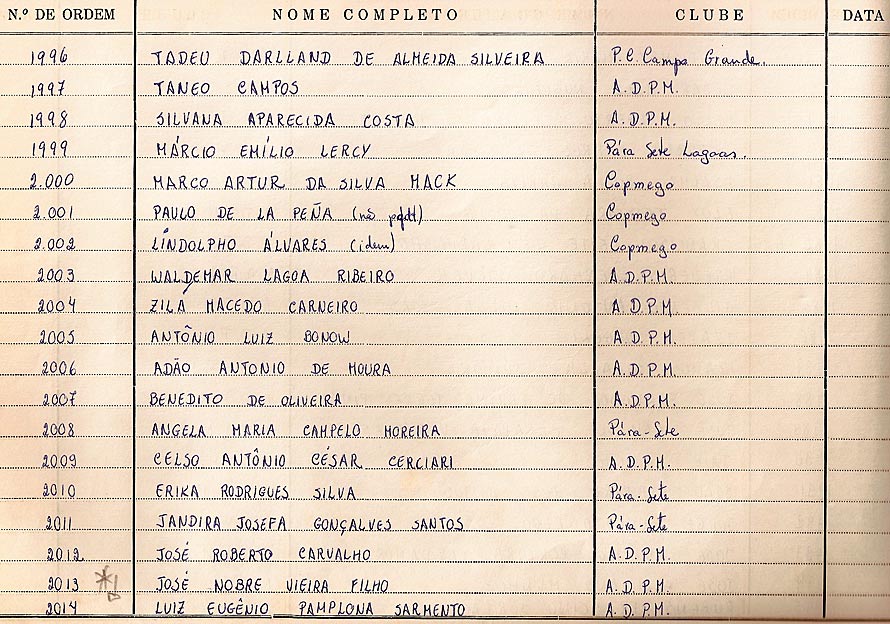 N.º DE ORDEM NOME COMPLETO CLUBE DATA
1996 TADEU DARLLAND DE ALMEIDA SILVEIRA P.C. Campo Grande.
1997 TANEO CAMPOS A.D.P.M.
1998 SILVANA APARECIDA COSTA A.D.P.M.
1999 MÁRCIO EMÍLIO LERCY Pára Sete Lagoas.
2.000 MARCO ARTUR DA SILVA MACK Copmego
2.001 PAULO DE LA PEÑA Copmego
2.002 LINDOLPHO ÁLVARES (idem) Copmego
2003 WALDEMAR LAGOA RIBEIRO A.D.P.M.
2004 ZILA MACEDO CARNEIRO A.D.P.M.
2005 ANTÔNIO LUIZ BONOW A.D.P.M.
2006 ADÃO ANTONIO DE MOURA A.D.P.M.
2007 BENEDITO DE OLIVEIRA A.D.P.M.
2008 ANGELA MARIA CAMPELO MOREIRA Pára-Sete
2009 CELSO ANTÔNIO CÉSAR CERCIARI A.D.P.M.
2010 ERIKA RODRIGUES SILVA Pára-Sete
2011 JANDIRA JOSEFA GONÇALVES SANTOS Pára-Sete
2012 JOSÉ ROBERTO CARVALHO A.D.P.M.
2013 JOSÉ NOBRE VIEIRA FILHO A.D.P.M.
2014 LUIZ EUGÊNIO PAMPLONA SARMENTO A.D.P.M.